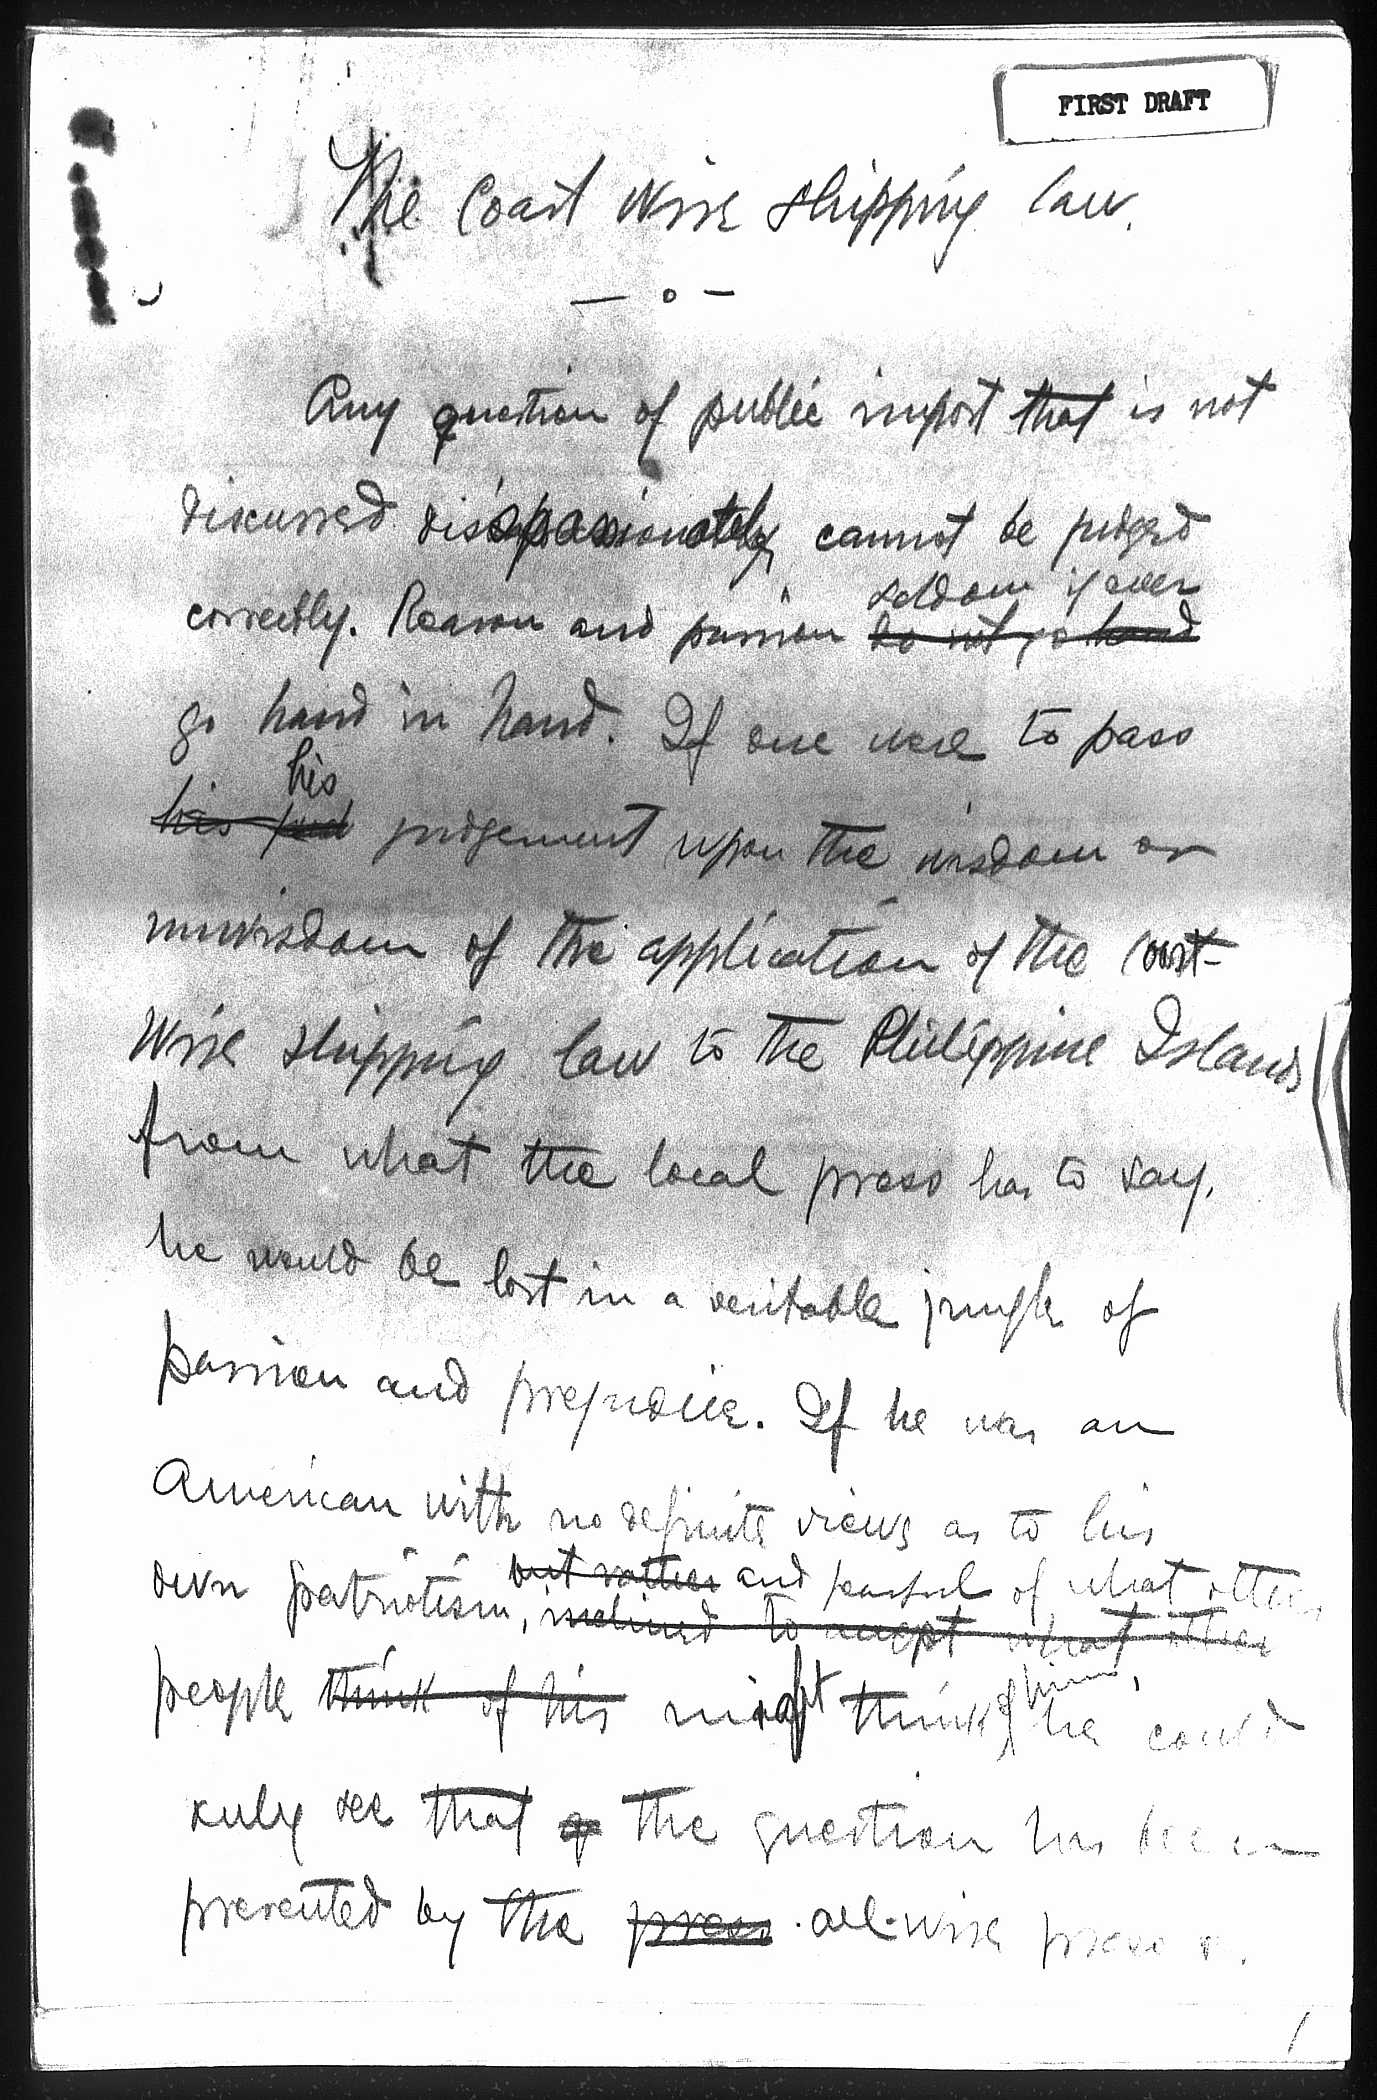 FIRST DRAFT
The Coast Wise Shipping law.
— o —
Any question of public import that is not
discussed dispassionately, cannot be judged
seldom if ever
correctly. Reason and passion do not go hand
go hand in hand. If one were to pass
his
his jud judgement upon the wisdom or
unwisdom of the application of the Coast-
Wise Shipping law to the Philippine Islands
from what the local press has to say,
he would be lost in a veritable jungle of
passion and prejudice. If he was an
American with no definite views as to his
but rather and fearful of what other
own patriotism, inclined to accept what other
of him,
people think of his might think he could
see that the question has been
presented by the press all-wise press
1